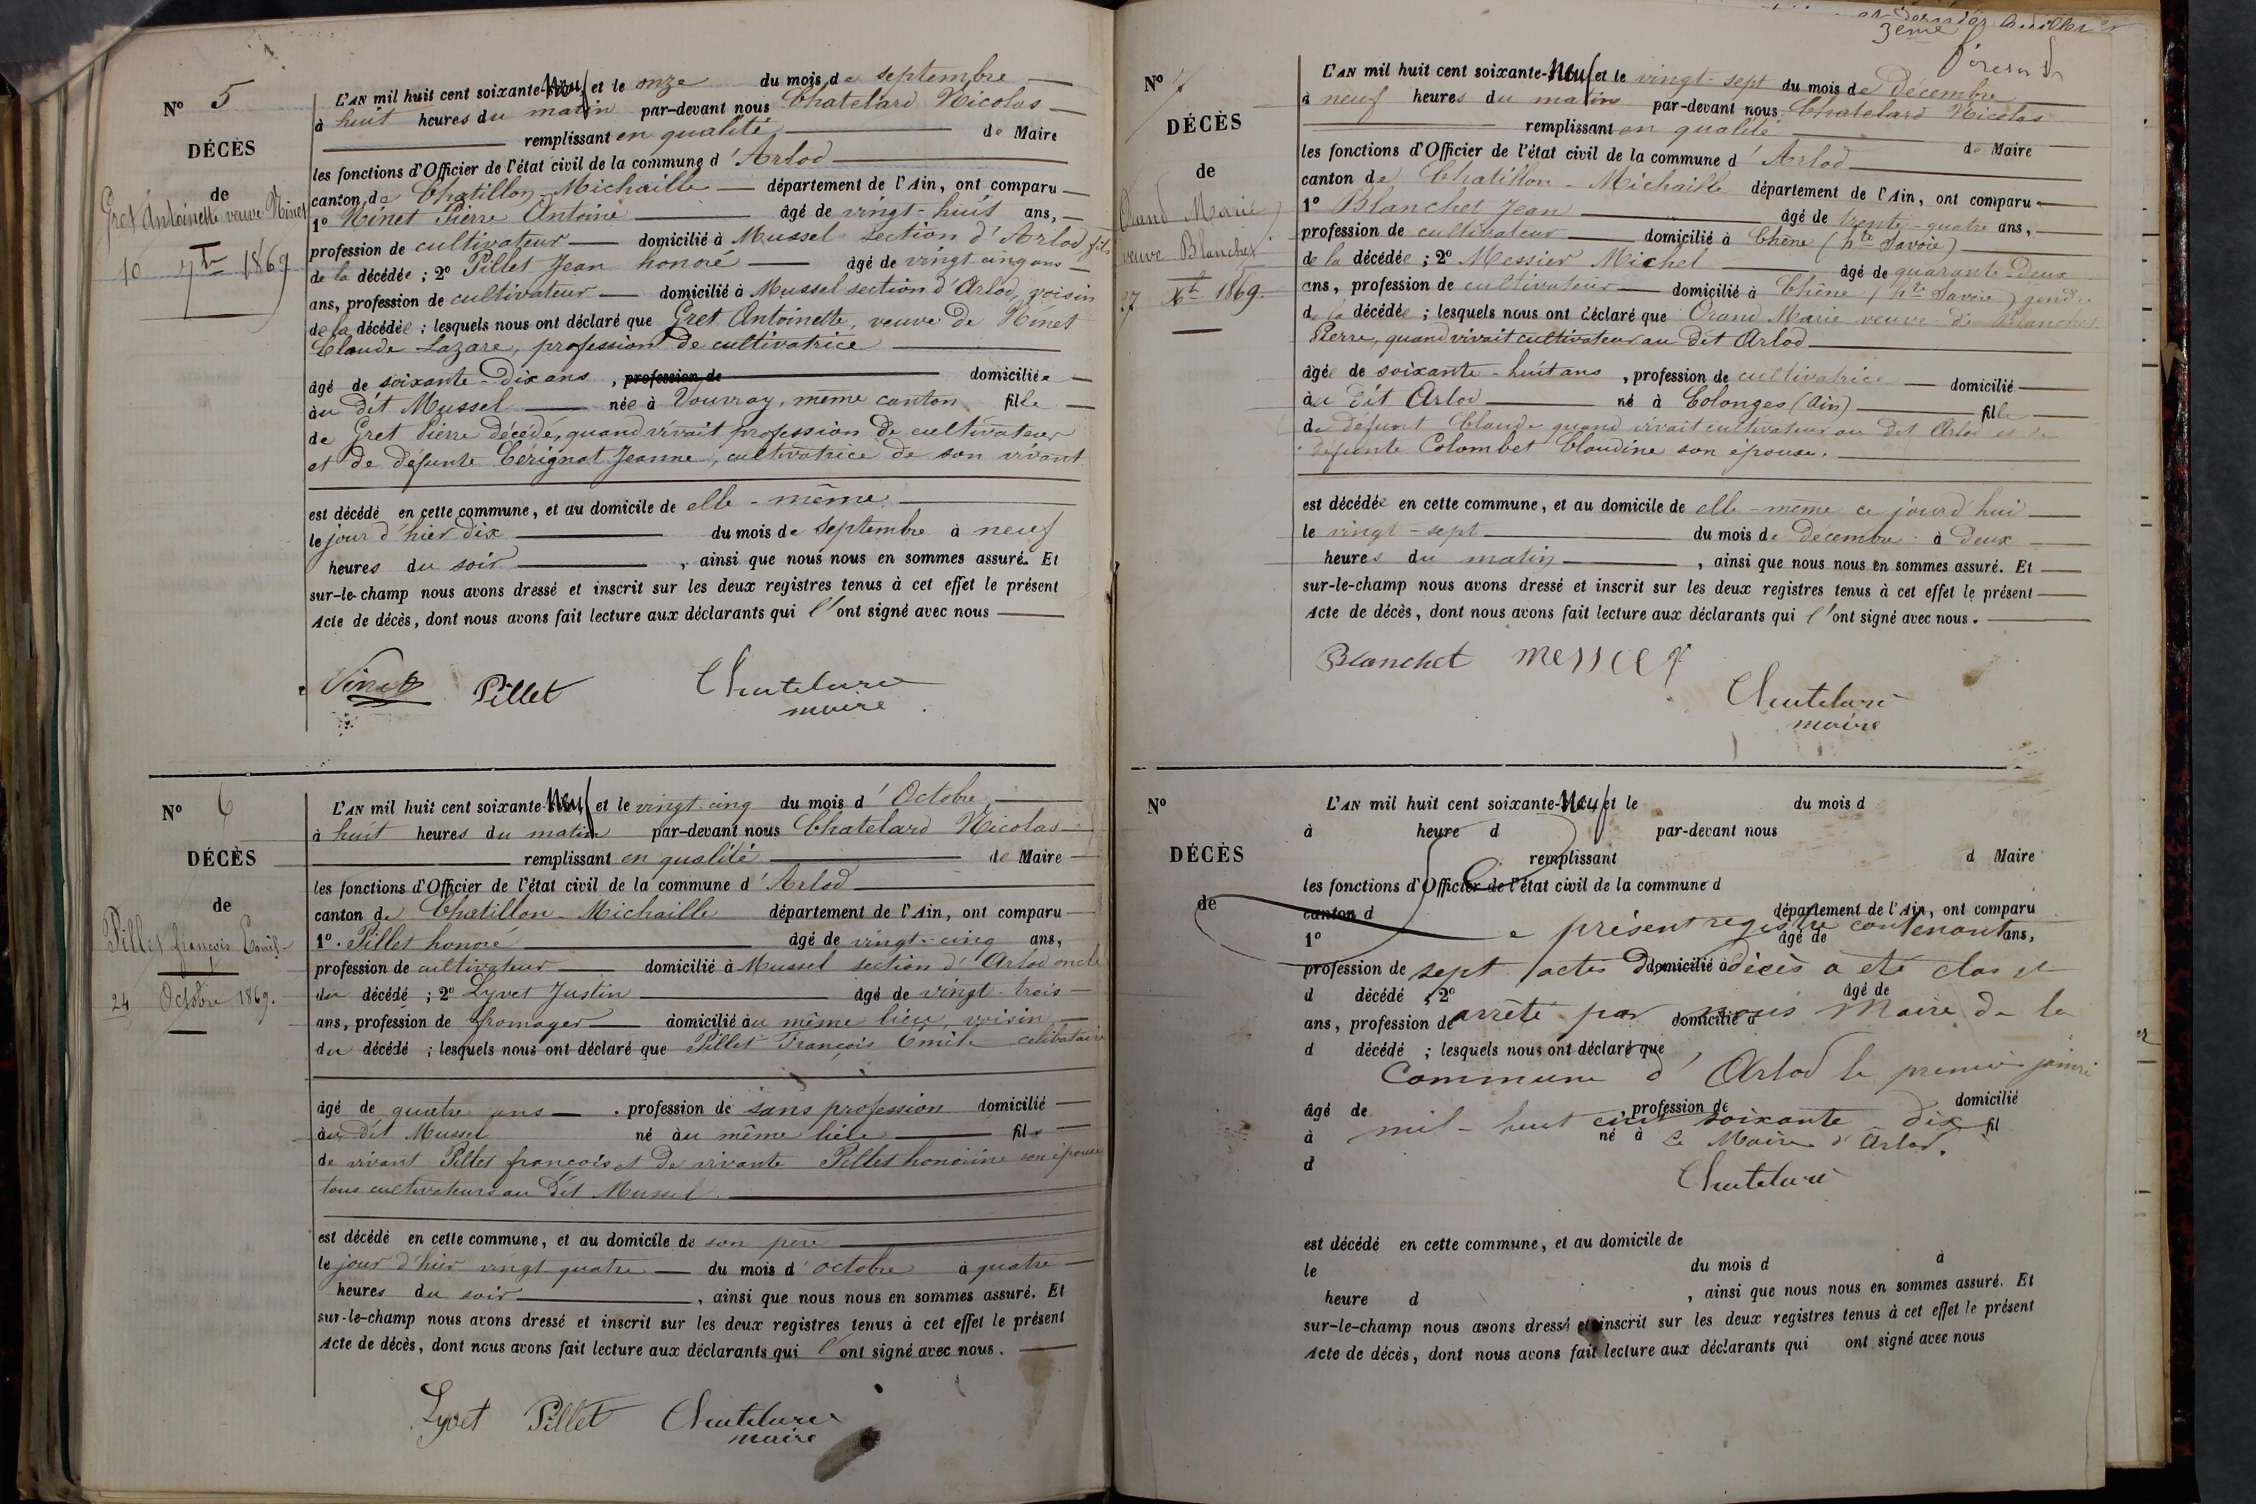 Nº 5
DÉCÈS
de
Gret Antoinette veuve Ninet
10 7bre 1869
L'AN mil huit cent soixante-Neuf et le onze du mois de septembre
à huit heures du matin par-devant nous Chatelard Nicolas
remplissant en qualité de Maire
les fonctions d'Officier de l'état civil de la commune d'Arlod
canton de Chatillon-Michaille département de l'Ain, ont comparu
1º Ninet Pierre Antoine âgé de vingt-huit ans,
profession de cultivateur domicilié à Mussel section d'Arlod, fils
de la décédée ; 2º Pillet Jean honoré âgé de vingt cinq ans
ans, profession de cultivateur domicilié à Mussel section d'Arlod, voisin
de la décédée ; lesquels nous ont déclaré que Gret Antoinette, veuve de Ninet
Claude Lazare, profession de cultivatrice
âgé de soixante-dix ans, profession de domiciliée
au dit Mussel née à Vouvray, meme canton fille
de Gret Pierre décédé, quand vivait profession de cultivateur
et de défunte Cerignat Jeanne, cultivatrice de son vivant
est décédé en cette commune, et au domicile de elle-même
le jour d'hier dix du mois de septembre à neuf
heures du soir, ainsi que nous nous en sommes assuré. Et
sur-le-champ nous avons dressé et inscrit sur les deux registres tenus à cet effet le présent
Acte de décès, dont nous avons fait lecture aux déclarants qui l'ont signé avec nous
Ninet Pillet Chatelard
maire
Nº 6
DÉCÈS
de
Pillet françois Emile
24 Octobre 1869.
L'AN mil huit cent soixante-Neuf et le vingt-cinq du mois d'Octobre
à huit heures du matin par-devant nous Chatelard Nicolas
remplissant en qualité de Maire
les fonctions d'Officier de l'état civil de la commune d'Arlod
canton de Chatillon-Michaille département de l'Ain, ont comparu
1º. Pillet honoré âgé de vingt-cinq ans,
profession de cultivateur domicilié à Mussel section d'Arlod oncle
du décédé ; 2º Lyvet Justin âgé de vingt-trois
ans, profession de fromager domicilié au même lieu, voisin
du décédé ; lesquels nous ont déclaré que Pillet François Emile célibataire
âgé de quatre ans . profession de sans profession domicilié
au dit Mussel né au même lieu fils
de vivant Pillet françois et de vivante Pillet honorine son épouse
tous cultivateurs au dit Mussel.
est décédé en cette commune, et au domicile de son père
le jour d'hier vingt quatre du mois d'octobre à quatre
heures du soir, ainsi que nous nous en sommes assuré. Et
sur-le-champ nous avons dressé et inscrit sur les deux registres tenus à cet effet le présent
Acte de décès, dont nous avons fait lecture aux déclarants qui l'ont signé avec nous.
Lyvet Pillet Chatelard
maire
3eme
Nº 7
DÉCÈS
de
Orand Marie
veuve Blanchet
27 Xbre 1869.
L'AN mil huit cent soixante-Neuf et le vingt-sept du mois de Décembre
à neuf heures du matin par-devant nous Chatelard Nicolas
remplissant en qualité de Maire
les fonctions d'Officier de l'état civil de la commune d'Arlod
canton de Chatillon-Michaille département de l'Ain, ont comparu
1º Blanchet Jean âgé de trente-quatre ans,
profession de cultivateur domicilié à Chêne (hte Savoie)
de la décédée ; 2º Messier Michel âgé de quarante-Deux
ans, profession de cultivateur domicilié à Chêne (hte Savoie) gendre
de la décédée ; lesquels nous ont déclaré que Orand Marie veuve de Blanchet
Pierre, quand vivait cultivateur au dit Arlod
âgée de soixante-huit ans, profession de cultivatrice domicilié
au dit Arlod né à Colonges (Ain) fille
de défunt Claude quand vivait cultivateur au dit Arlod et de
défunte Colombet Claudine son épouse.
est décédée en cette commune, et au domicile de elle-même ce jourd'hui
le vingt-sept du mois de Décembre à deux
heures du matin, ainsi que nous nous en sommes assuré. Et
sur-le-champ nous avons dressé et inscrit sur les deux registres tenus à cet effet le présent
Acte de décès, dont nous avons fait lecture aux déclarants qui l'ont signé avec nous.
Blanchet messier
Chatelard
maire
Nº
DÉCÈS
de
L'AN mil huit cent soixante-Neuf et le du mois d
à heure d par-devant nous
remplissant d Maire
les fonctions d'Officier de l'état civil de la commune d
canton d département de l'Ain, ont comparu
Le présent registre contenant
1º âgé de ans,
profession de domicilié à
sept actes de décès a été clos et
d décédé ; 2º âgé de
ans, profession de domicilié à
arrêté par nous Maire de la
d décédé ; lesquels nous ont déclaré que
Commune d'Arlod le premier janvier
âgé de , profession de domicilié
mil-huit cent soixante dix
à né à fil
Le Maire d'Arlod.
d
Chatelard
est décédé en cette commune, et au domicile de
le du mois d à
heure d , ainsi que nous nous en sommes assuré. Et
sur-le-champ nous avons dressé et inscrit sur les deux registres tenus à cet effet le présent
Acte de décès, dont nous avons fait lecture aux déclarants qui ont signé avec nous